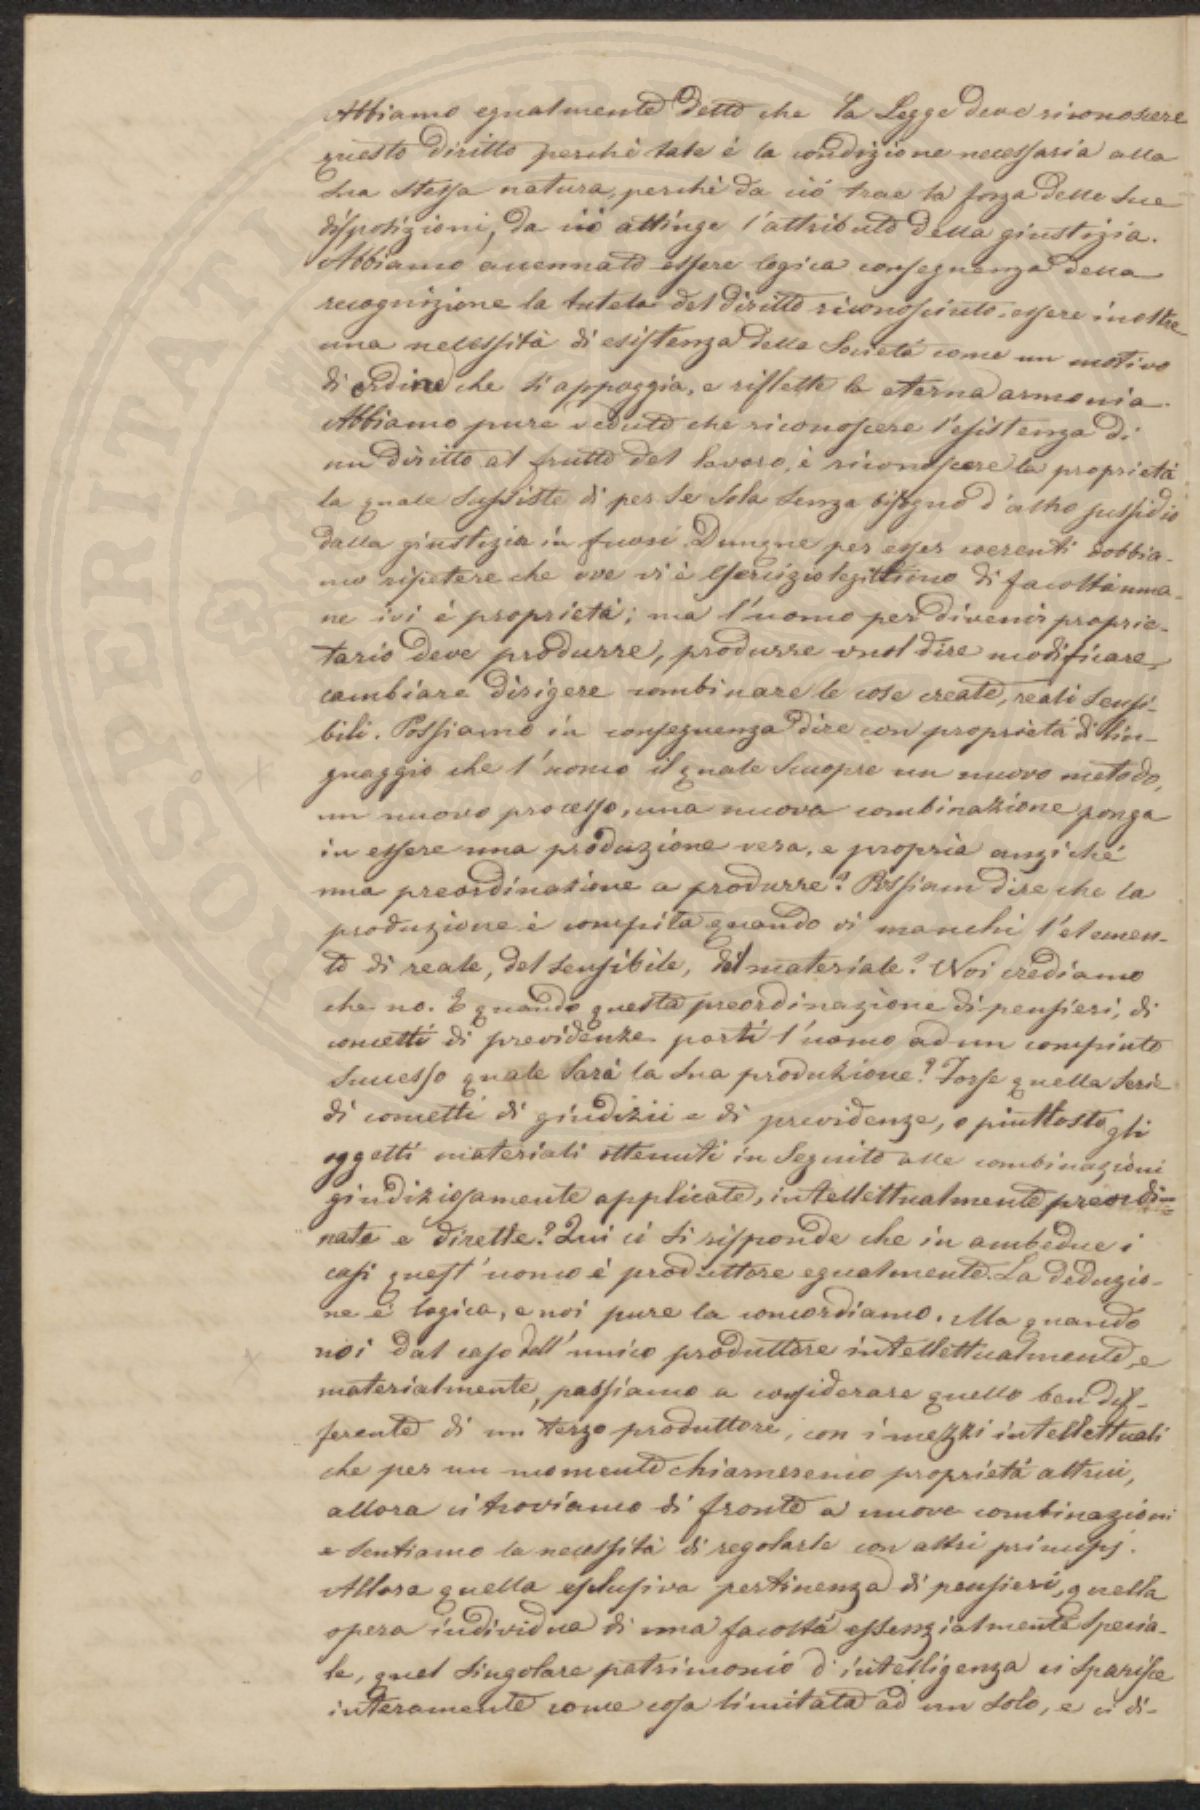 Abbiamo egualmente detto che la Legge deve riconoscere
questo diritto perchè tale è la condizione necessaria alla
sua stessa natura, perchè da ciò trae la forza delle sue
disposizioni, da ciò attinge l'attributo della giustizia.
Abbiamo accennato essere logica conseguenza della
recognizione la tutela del diritto riconosciuto, essere inoltre
una necessità di esistenza della Società come un motivo
di ordine che si appoggia, e riflette la eterna armonia.
Abbiamo pure veduto che riconoscere l'esistenza di
un diritto al frutto del lavoro, è riconoscere la proprietà
la quale sussiste di per se sola senza bisogno d'altro sussidio
dalla giustizia in fuori. Dunque per esser coerenti dobbia-
mo ripetere che ove vi è esercizio legittimo di facoltà uma-
ne ivi è proprietà; ma l'uomo per divenir proprie-
tario deve produrre, produrre vuol dire modificare,
cambiare dirigere combinare le cose create, reali sensi-
bili. Possiamo in conseguenza dire con proprietà di lin-
guaggio che l'uomo il quale scuopre un nuovo metodo,
un nuovo processo, una nuova combinazione ponga
in essere una produzione vera, e propria anzichè
una preordinazione a produrre? Possiam dire che la
produzione è compita quando vi manchi l'elemen-
to di reale, del sensibile, del materiale? Noi crediamo
che no. E quando questa preordinazione di pensieri, di
concetti di previdenze porti l'uomo ad un compiuto
successo quale sarà la sua produzione? Forse quella serie
di concetti di giudizii e di previdenze, o piuttosto gli
oggetti materiali ottenuti in seguito alle combinazioni
giudiziosamente applicate, intellettualmente preordi=
nate e dirette? Qui ci si risponde che in ambedue i
casi quest'uomo è produttore egualmente. La deduzio-
ne è logica, e noi pure la concordiamo. Ma quando
noi dal caso dell'unico produttore intellettualmente, e
materialmente, passiamo a considerare quello ben dif-
ferente di un terzo produttore, con i mezzi intellettuali
che per un momento chiameremo proprietà altrui,
allora ci troviamo di fronte a nuove combinazioni
e sentiamo la necessità di regolarle con altri principj.
Allora quella esclusiva pertinenza di pensieri, quella
opera individua di una facoltà essenzialmente specia-
le, quel singolare patrimonio d'intelligenza ci sparisce
interamente come cosa limitata ad un solo, e ci di-
SOSPERITATI